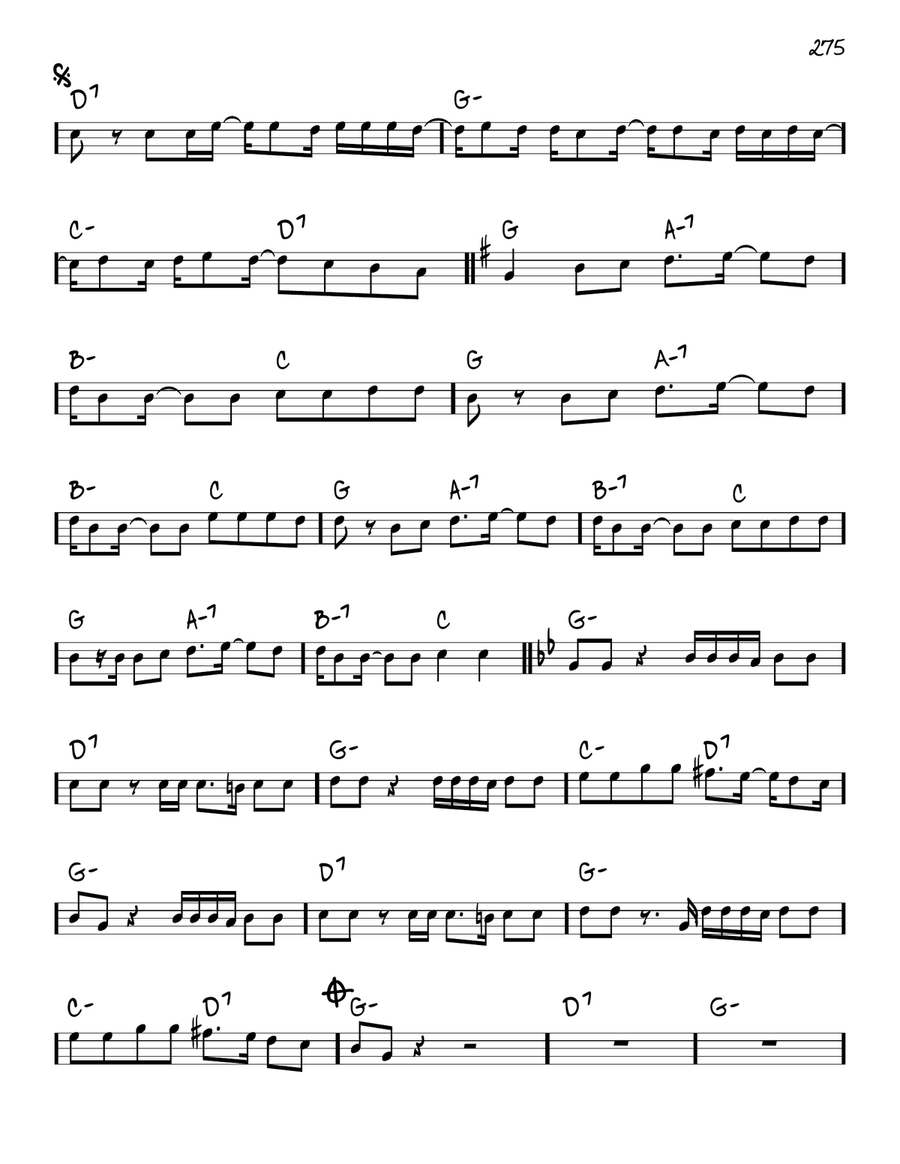 275
D7 G-
C- D7 G A-7
B- C G A-7
B- C G A-7 B-7 C
G A-7 B-7 C G-
D7 G- C- D7
G- D7 G-
C- D7 G- D7 G-